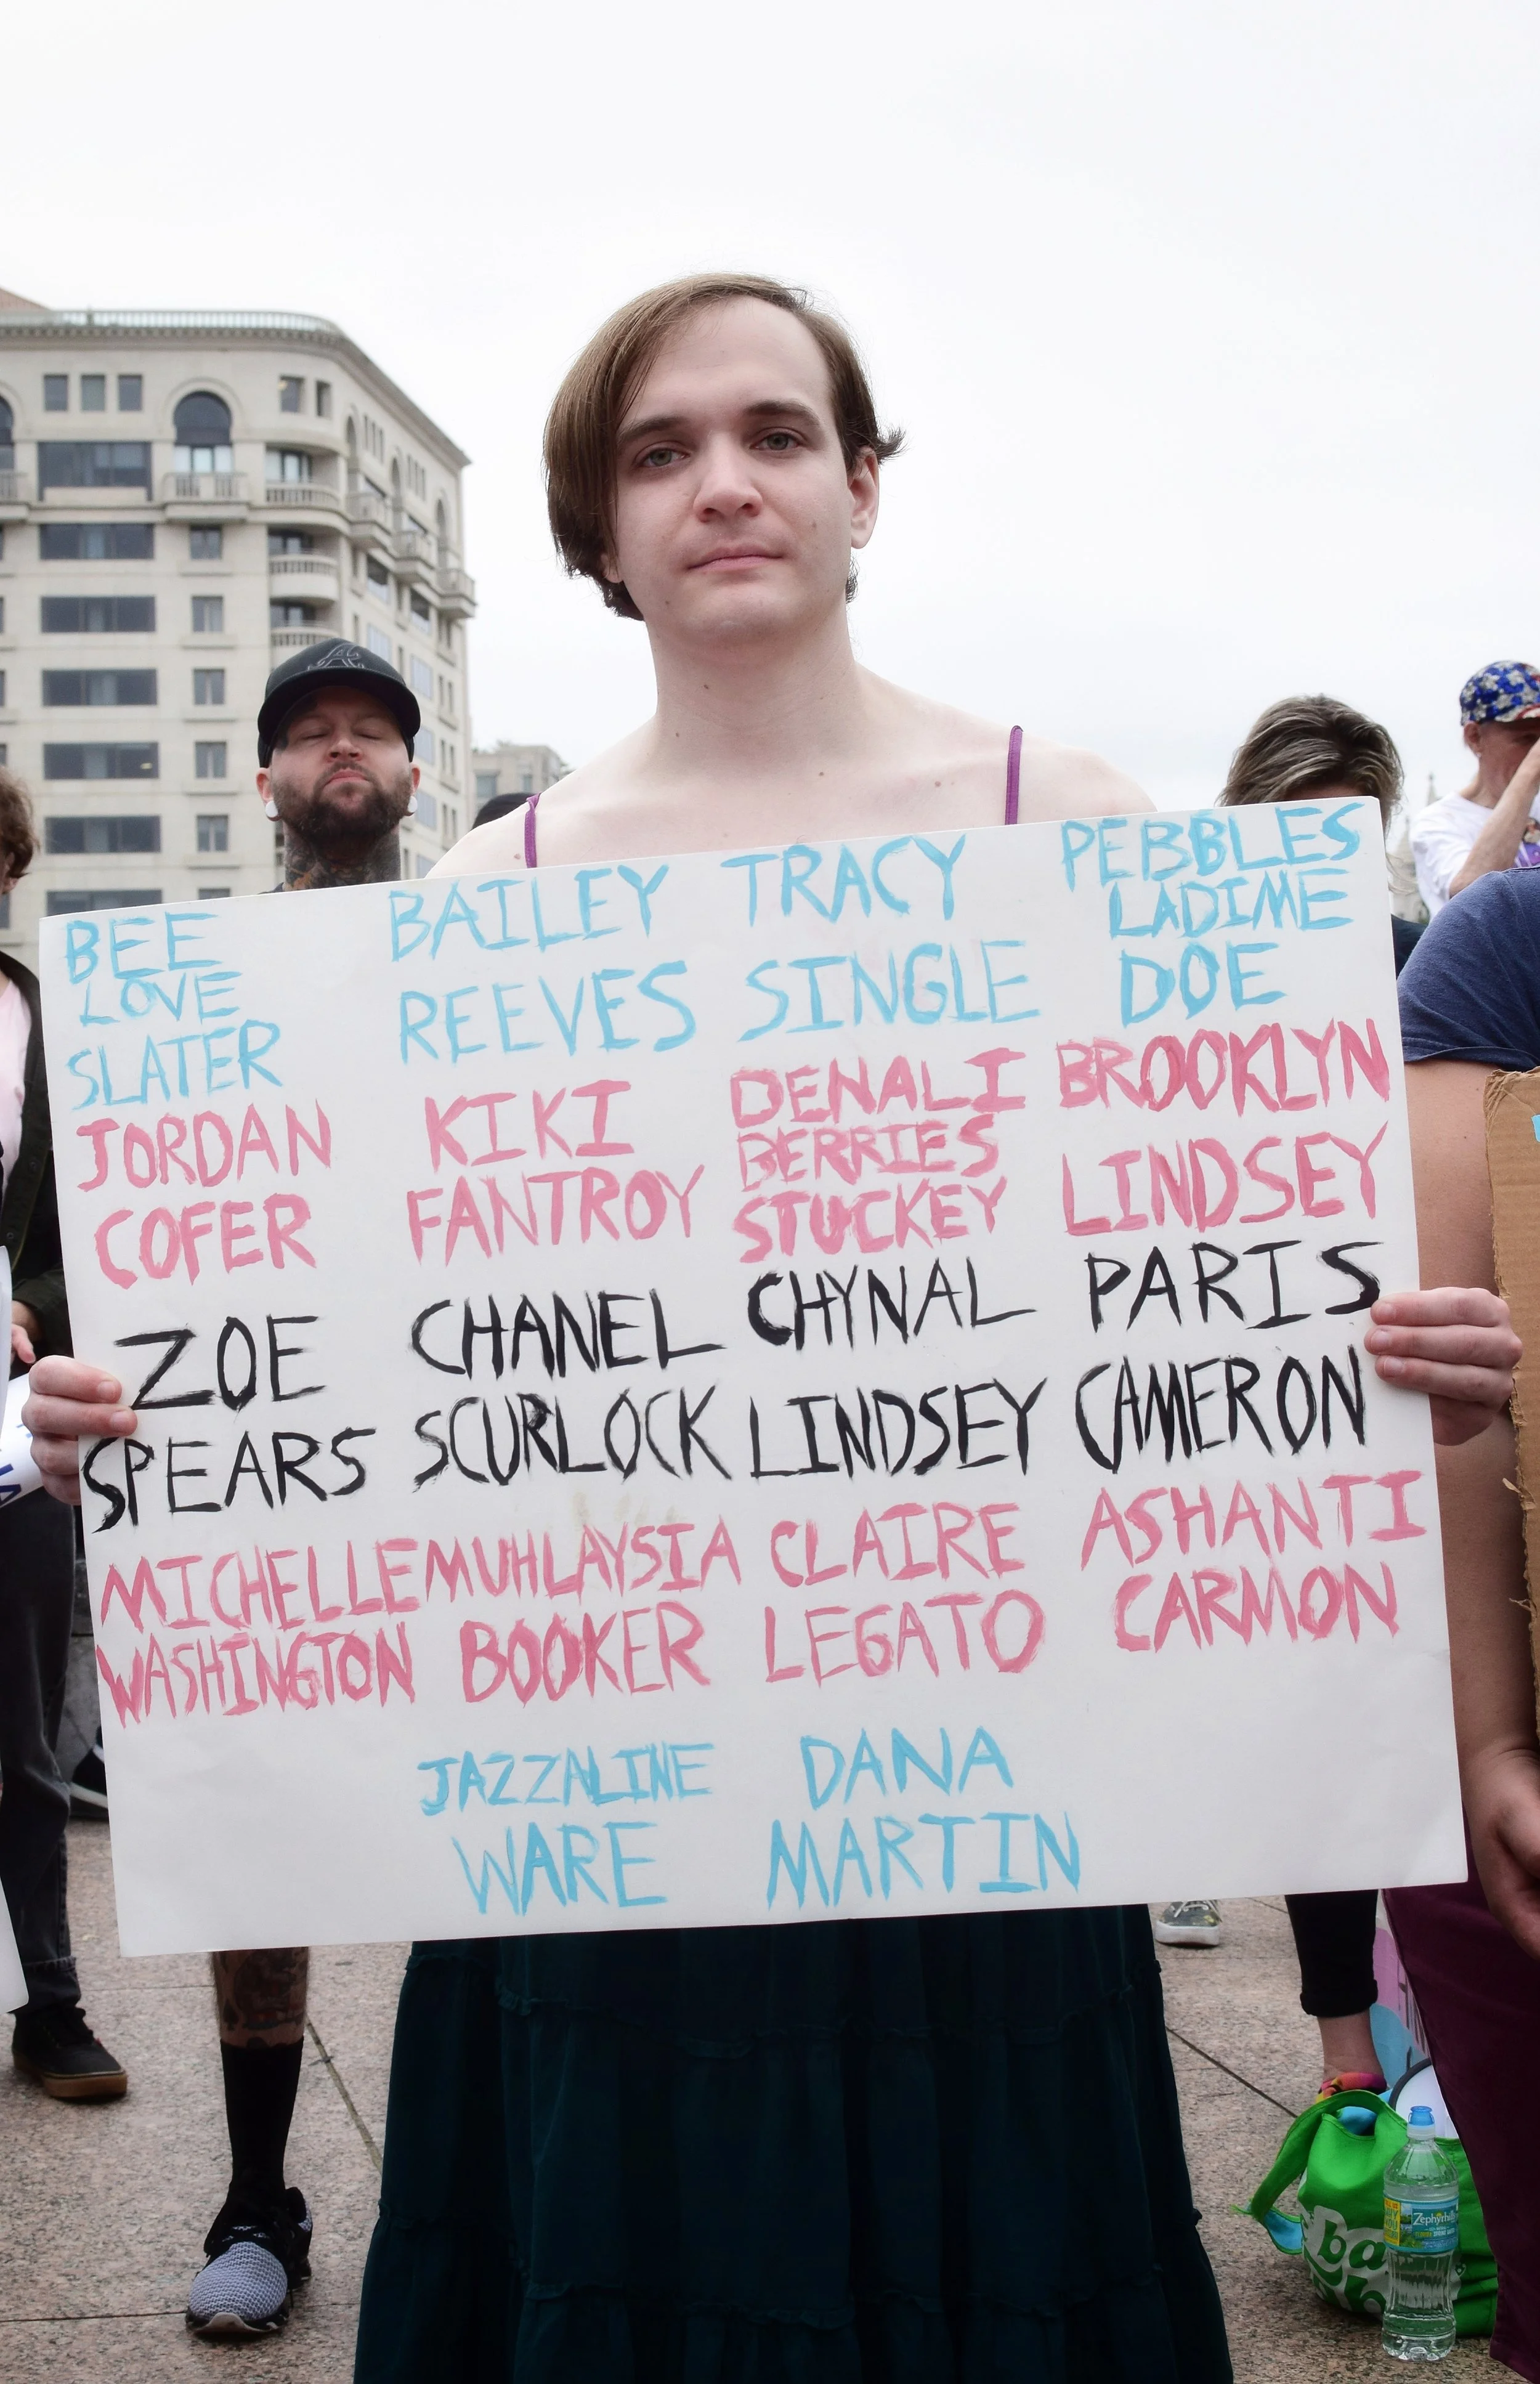 BEE
LOVE
SLATER
BAILEY
REEVES
TRACY
SINGLE
PEBBLES
LADIME
DOE
JORDAN
COFER
KIKI
FANTROY
DENALI
BERRIES
STUCKEY
BROOKLYN
LINDSEY
ZOE
SPEARS
CHANEL
SCURLOCK
CHYNAL
LINDSEY
PARIS
CAMERON
MICHELLE
WASHINGTON
MUHLAYSIA
BOOKER
CLAIRE
LEGATO
ASHANTI
CARMON
JAZZALINE
WARE
DANA
MARTIN